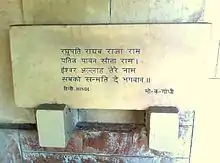 रघुपति राघव राजा राम
पतित पावन सीता राम ।
ईश्वर अल्लाह तेरे नाम
सबको सन्मति दे भगवान ॥
हिन्दी-HINDI
मो-क-गांधी